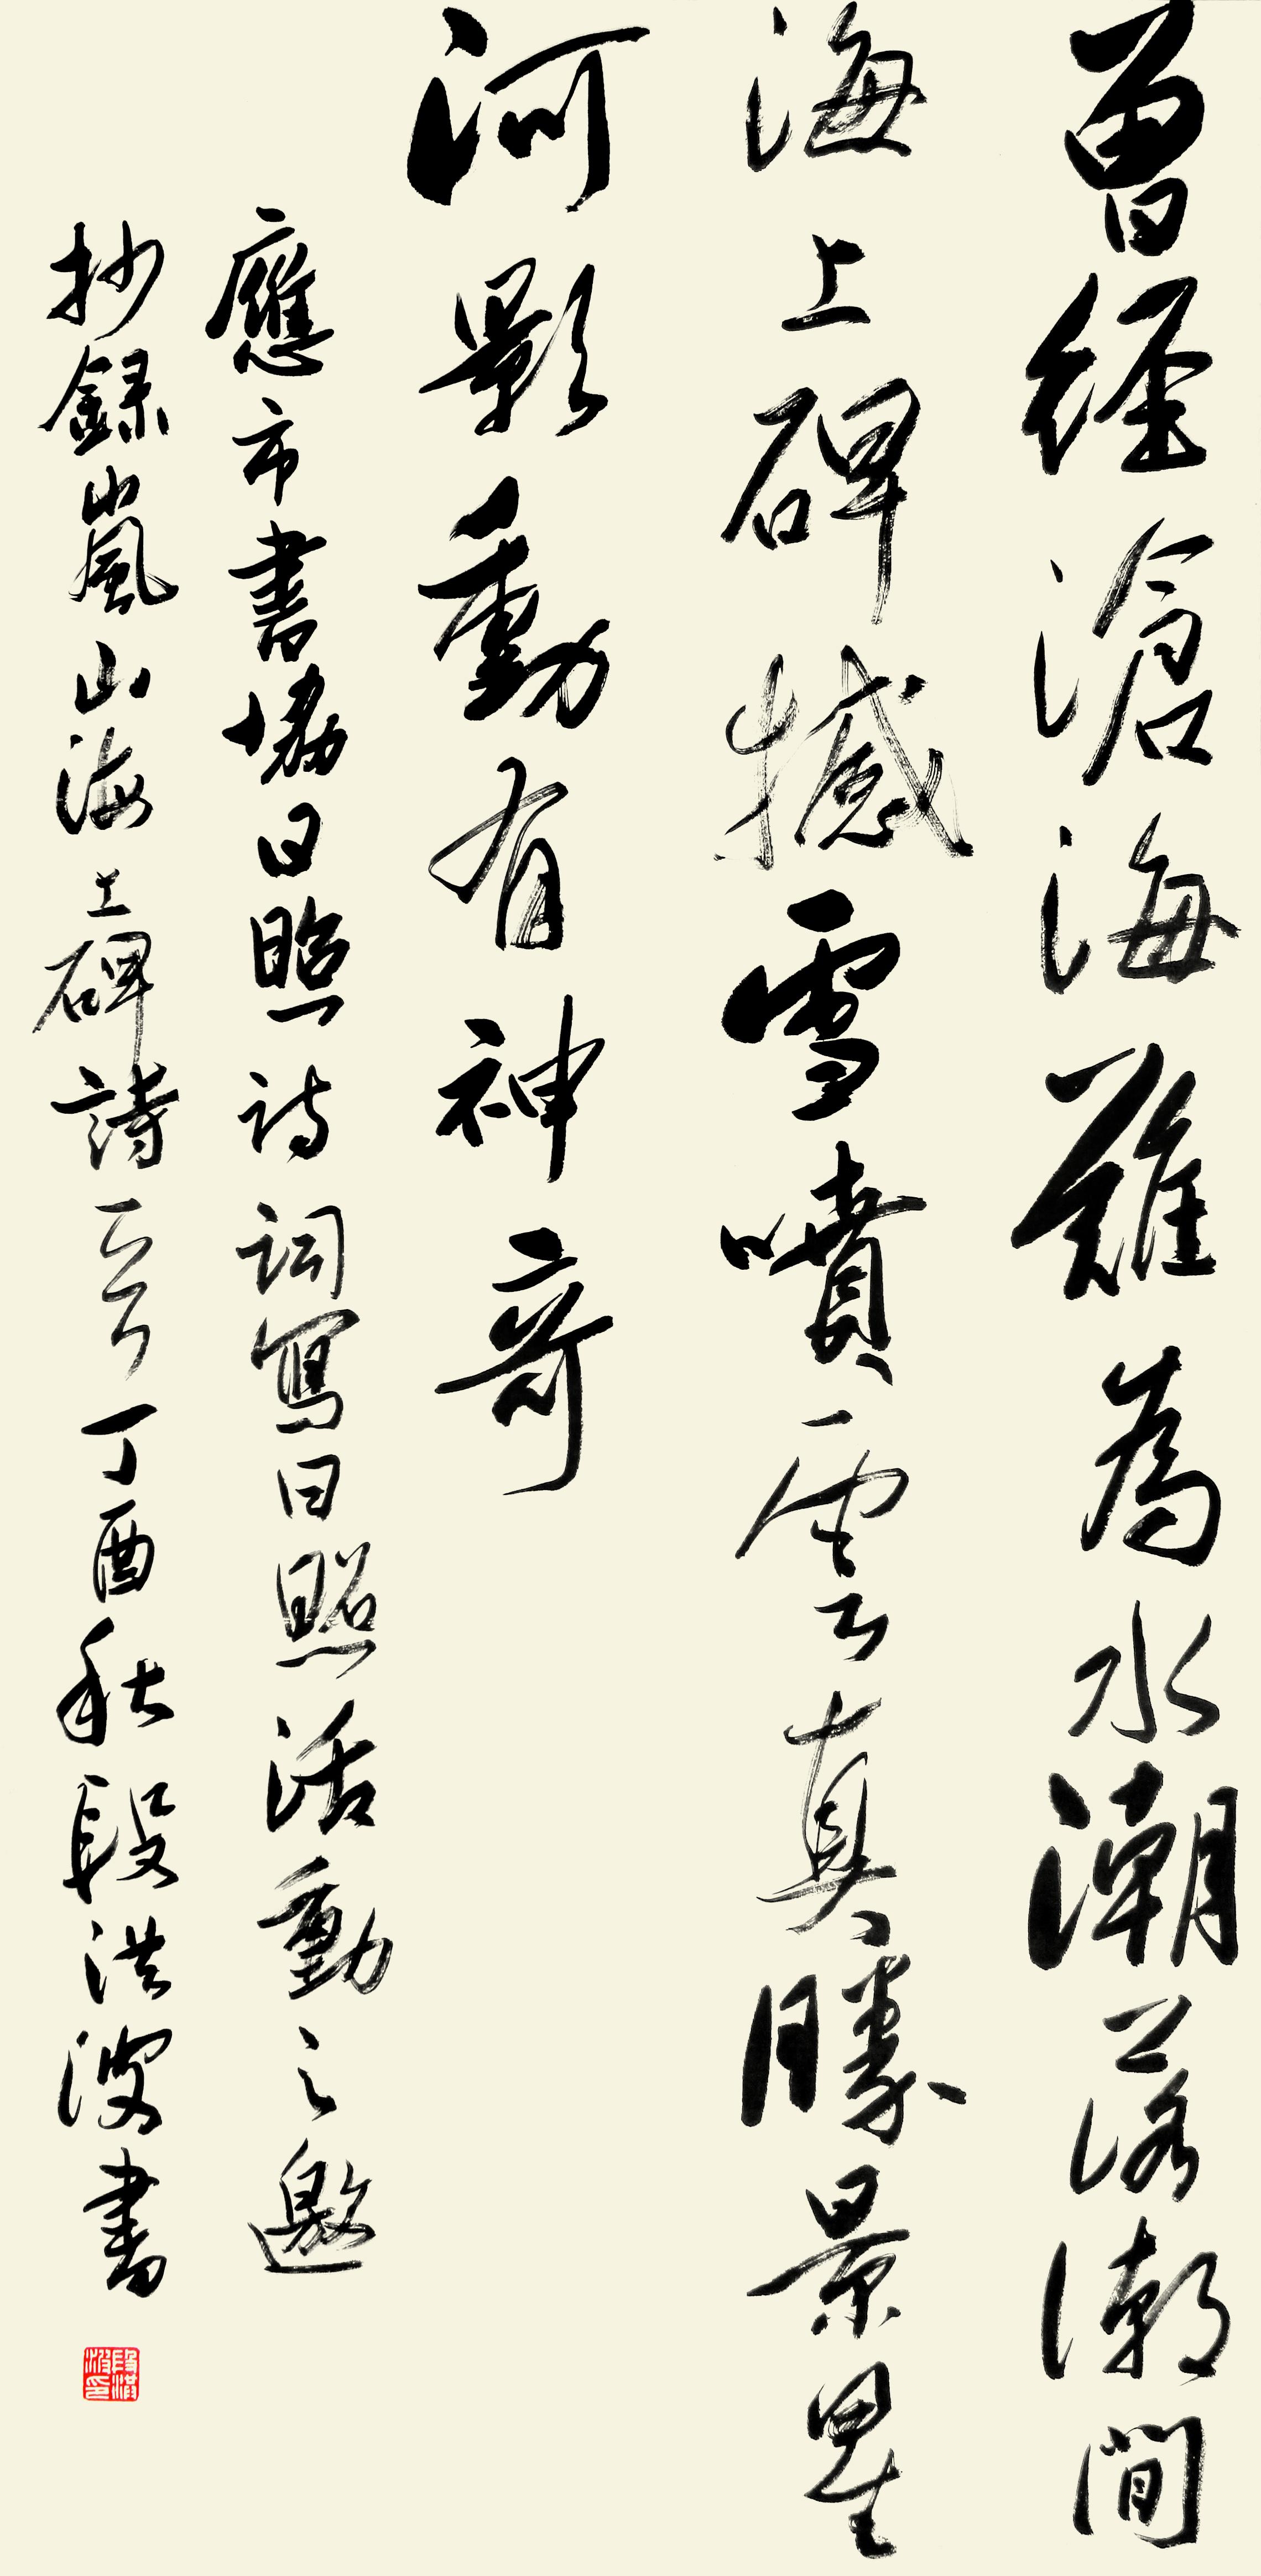 曾經滄海難為水潮落潮間
海上碑撼雪噴雲真勝景星
河影動有神奇
應市書協日照詩詞寫日照活動之邀
抄錄嵐山海上碑詩一首丁酉秋段洪波書
段洪波印